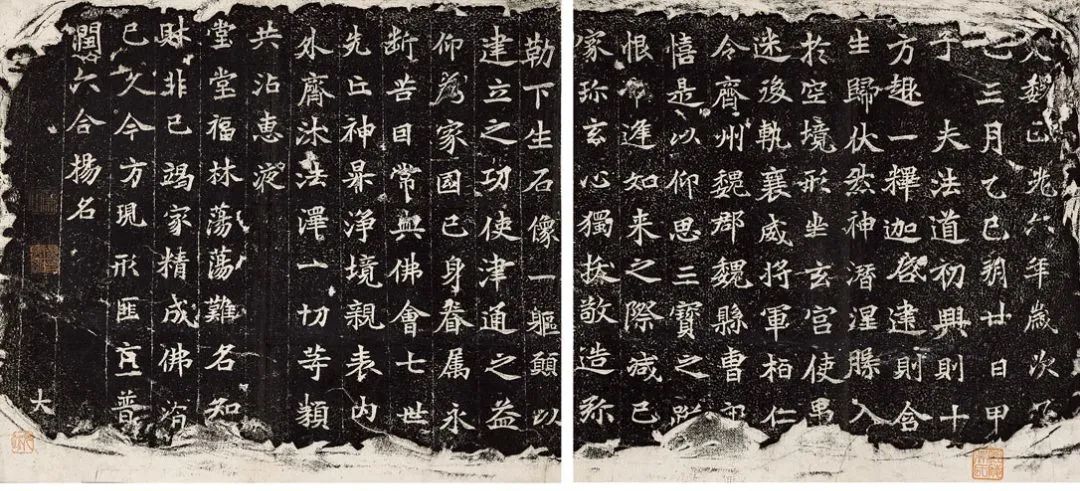 大魏正光六年歲次乙
巳三月乙巳朔廿日甲
子夫法道初興則十
方趣一釋迦啓建則含
生歸伏然神潛涅槃入
於空境形坐玄宮使愚
迷後軌襄威將軍栢仁
令齊州魏郡魏縣曹
憘是以仰思三寶之蹤
恨逢如来之際減己
家珎玄心獨拔敬造弥
勒下生石像一軀願以
建立之功使津通之益
仰為家國己身眷属永
断苦因常與佛會七世
先亡神昇淨境親表内
外齊沐法澤一切等類
共沾惠液
堂堂福林蕩蕩難名知
財非己竭家精成佛
已久今方現形匪直普
潤六合揚名
大